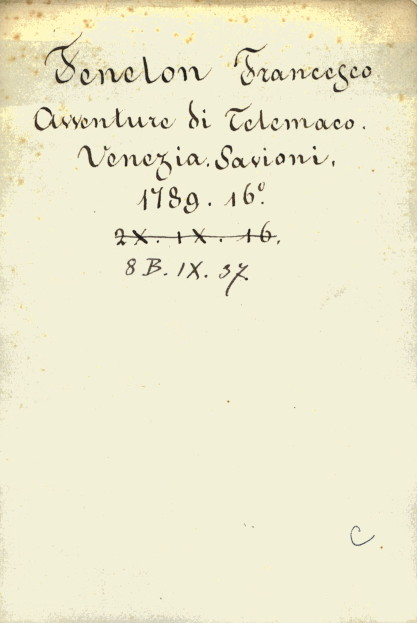 Fenelon Francesco
Avventure di Telemaco.
Venezia. Savioni.
1789. 16º.
2X. IX. 16.
8 B. IX. 37.
C